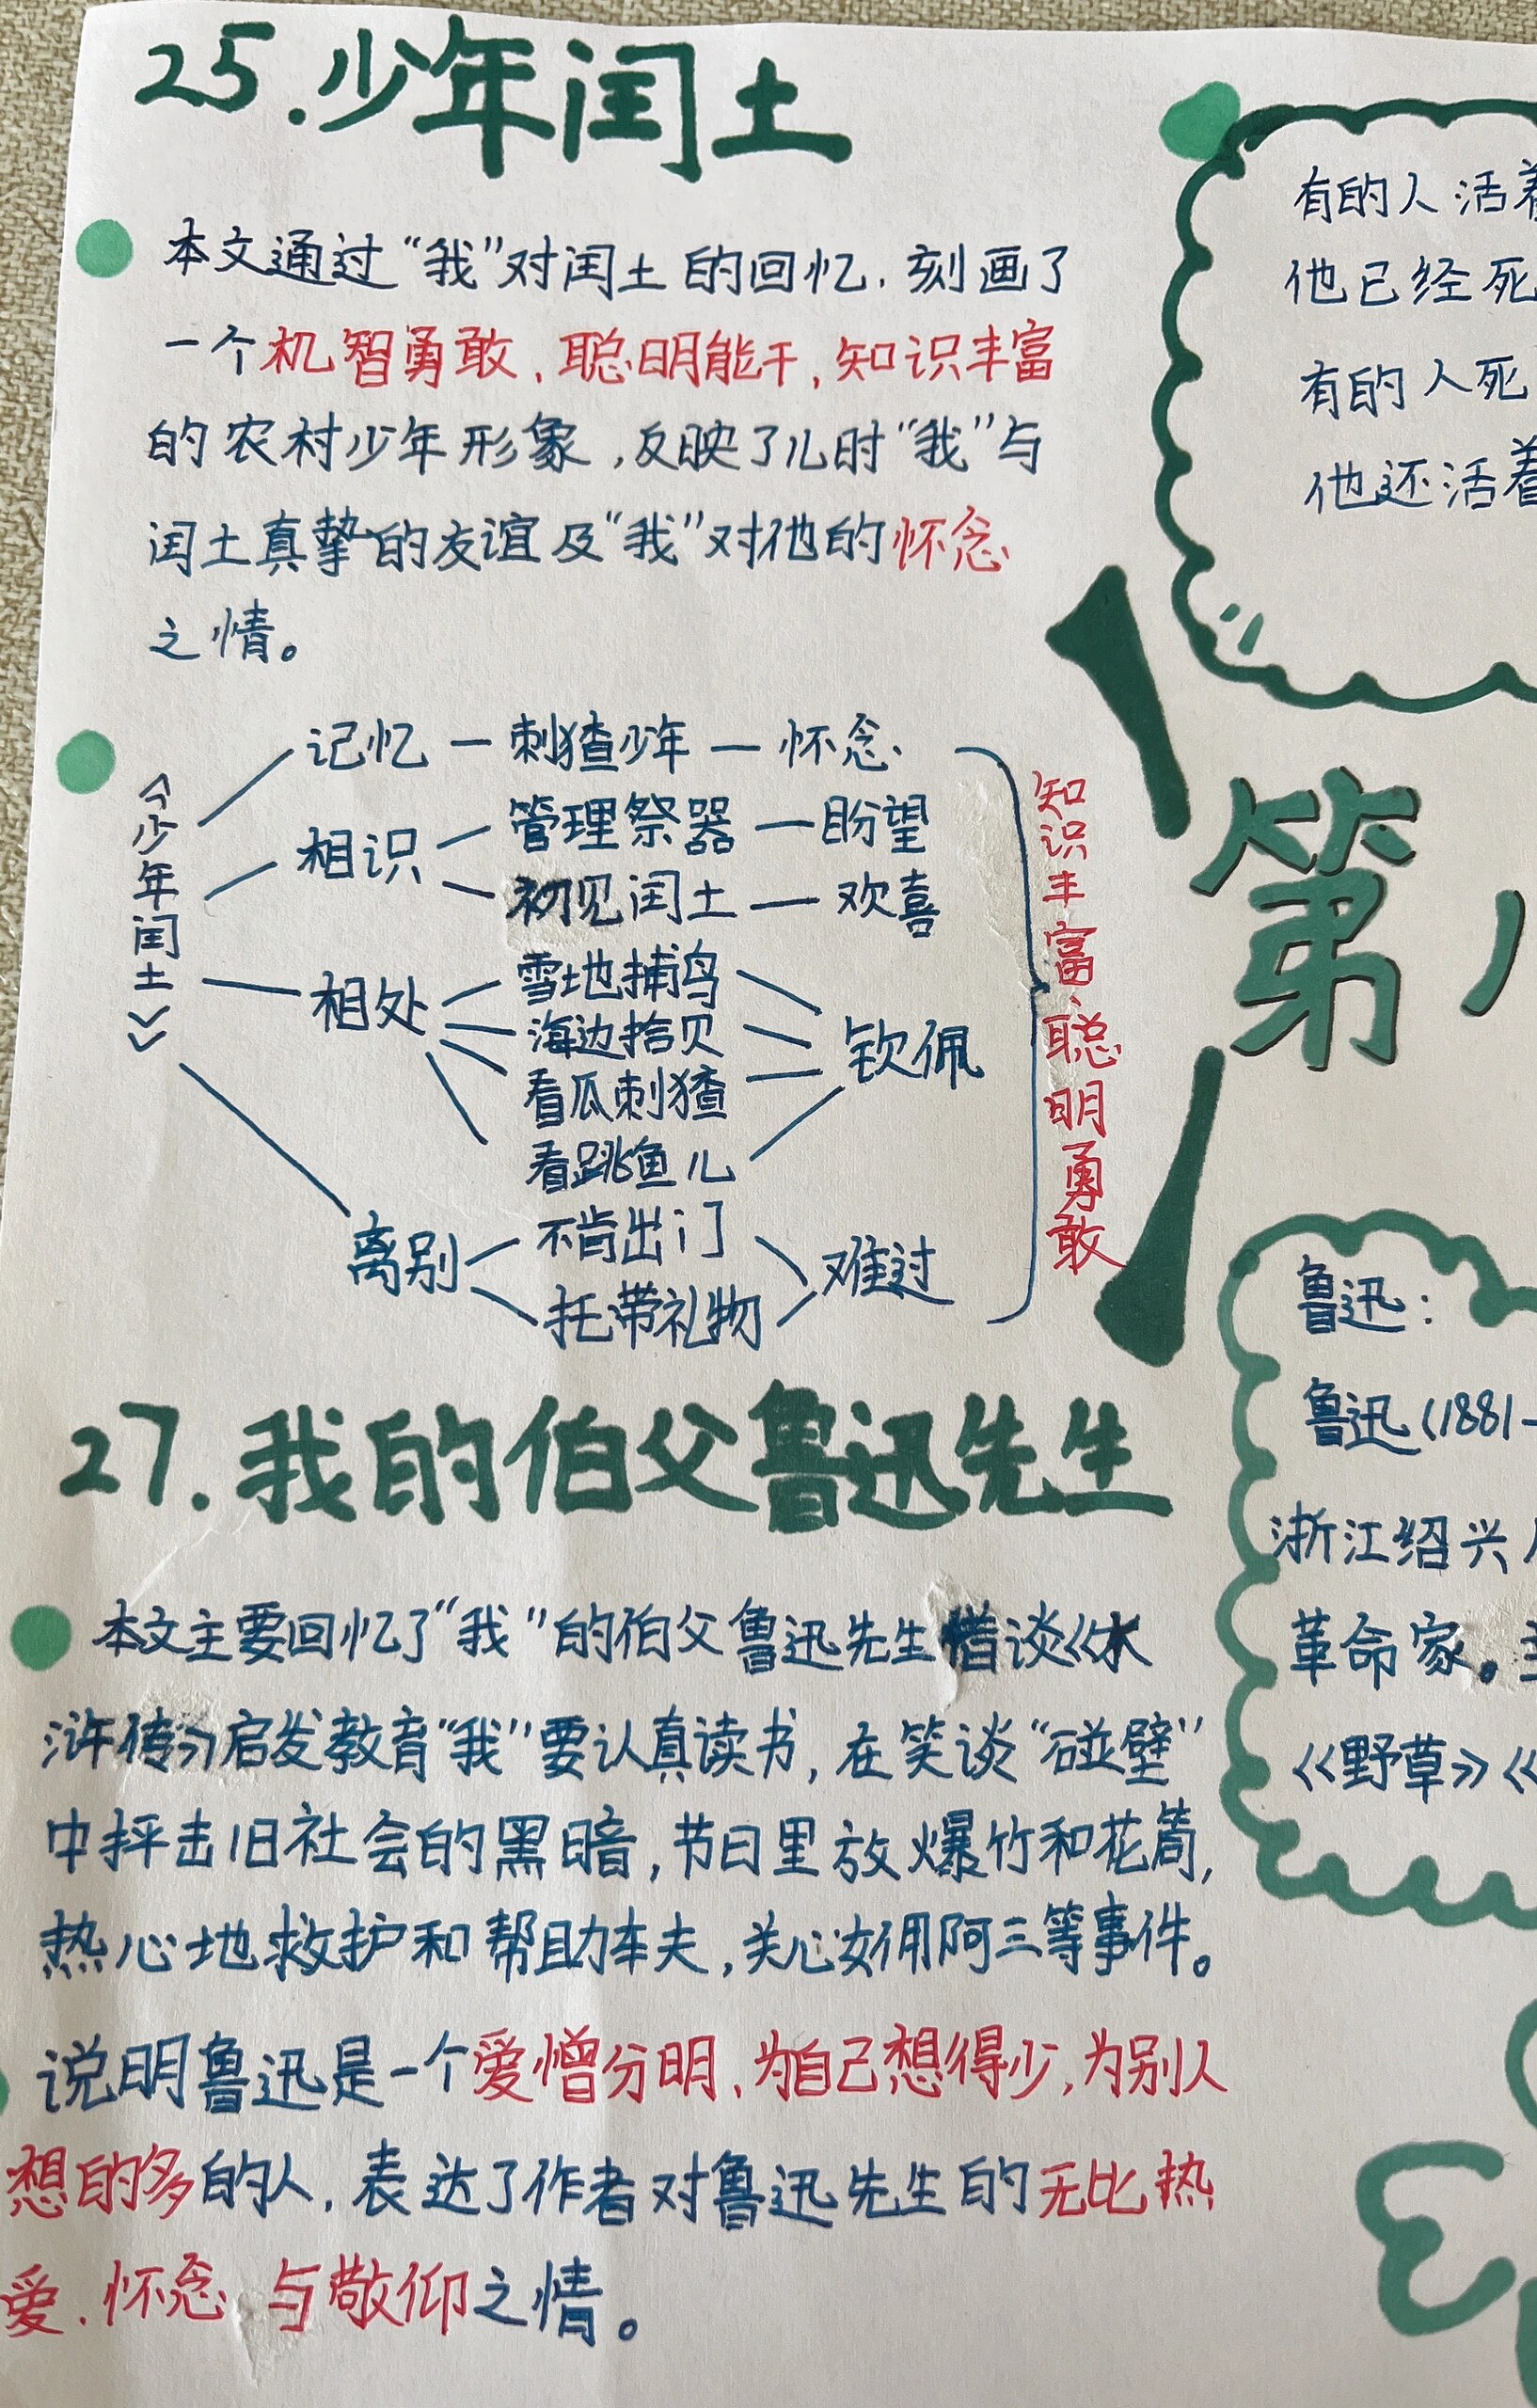 25.少年闰土
本文通过“我”对闰土的回忆、刻画了
一个机智勇敢、聪明能干,知识丰富
的农村少年形象,反映了儿时“我”与
闰土真挚的友谊及“我”对他的怀念
之情。
《少年闰土》
记忆 — 刺猹少年 — 怀念
相识
管理祭器 — 盼望
初见闰土 — 欢喜
相处
雪地捕鸟
海边拾贝
看瓜刺猹
看跳鱼儿
钦佩
离别
不肯出门
托带礼物
难过
知识丰富、聪明勇敢
27.我的伯父鲁迅先生
本文主要回忆了“我”的伯父鲁迅先生借谈《水
浒传》启发教育“我”要认真读书,在笑谈“碰壁”
中抨击旧社会的黑暗,节日里放爆竹和花筒,
热心地救护和帮助车夫,关心女佣阿三等事件。
说明鲁迅是一个爱憎分明、为自己想得少,为别人
想的多的人,表达了作者对鲁迅先生的无比热
爱、怀念与敬仰之情。
有的人活着
他已经死
有的人死
他还活着
第
鲁迅:
鲁迅(1881-
浙江绍兴
革命家。
《野草》《